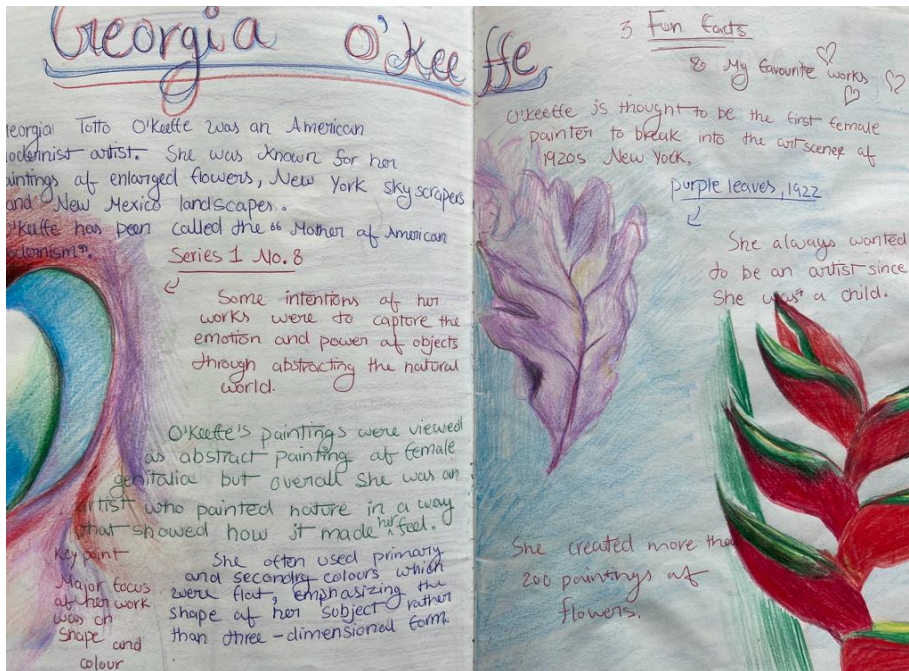 Georgia O'Keeffe
eorgia Totto O'Keeffe was an American
odernist artist. She was known for her
aintings of enlarged flowers, New York sky scrapers
and New Mexico landscapes.
'Keeffe has been called the "Mother of American
odernism".
Series 1 No. 8
Some intentions of her
works were to capture the
emotion and power of objects
through abstracting the natural
world.
O'Keeffe's paintings were viewed
as abstract painting of female
genitalia but overall she was an
artist who painted nature in a way
that showed how it made her feel.
Key point
Major focus
of her work
was on
shape and
colour
She often used primary
and secondry colours which
were flat, emphasizing the
shape of her subject rather
than three-dimensional form.
3 Fun facts
& My favourite works
O'Keeffe is thought to be the first female
painter to break into the art scene of
1920s New York.
purple leaves, 1922
She always wanted
to be an artist since
She was a child.
She created more tha
200 paintings of
flowers.